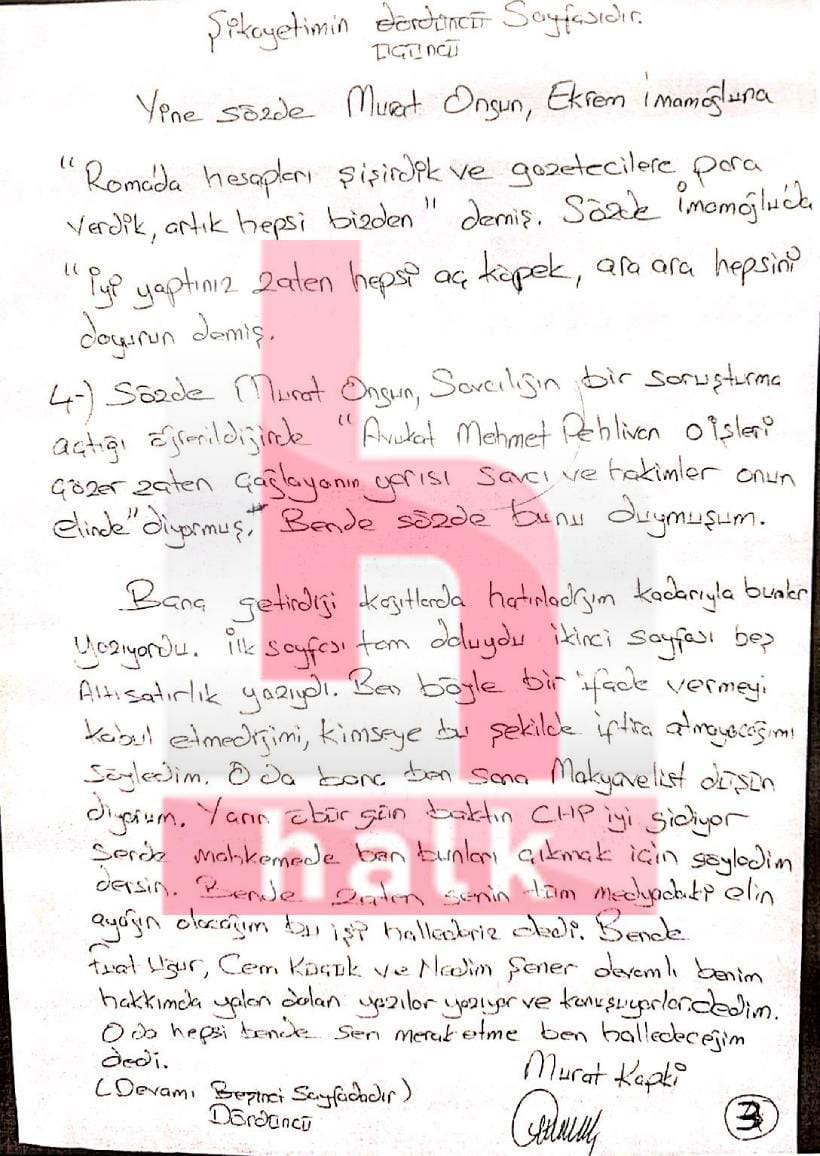 Şikayetimin dördüncü Sayfasıdır.
Üçüncü
Yine sözde Murat Ongun, Ekrem İmamoğluna
"Roma'da hesapları şişirdik ve gazetecilere para
verdik, artık hepsi bizden" demiş. Sözde İmamoğlu'da
"İyi yaptınız zaten hepsi aç köpek, ara ara hepsini
doyurun demiş.
4-) Sözde Murat Ongun, Savcılığın bir soruşturma
açtığı öğrenildiğinde "Avukat Mehmet Pehlivan o işleri
çözer zaten Çağlayanın yarısı savcı ve hakimler onun
elinde" diyormuş. Bende sözde bunu duymuşum.
Bana getirdiği kağıtlarda hatırladığım kadarıyla bunlar
yazıyordu. İlk sayfası tam doluydu ikinci sayfası beş
Altı satırlık yazıydı. Ben böyle bir ifade vermeyi
kabul etmediğimi, kimseye bu şekilde iftira atmayacağımı
söyledim. O da bana ben sana Makyavelist düşün
diyorum. Yarın öbür gün baktın CHP iyi gidiyor
Sende mahkemede ben bunları çıkmak için söyledim
dersin. Bende zaten senin tüm medyadaki elin
ayağın olacağım bu işi hallederiz dedi. Bende
Fuat Uğur, Cem Küçük ve Nedim Şener devamlı benim
hakkımda yalan dolan yazılar yazıyor ve konuşuyorlar dedim.
O da hepsi bende sen merak etme ben halledeceğim
dedi.
Murat Kapki
(Devamı Beşinci Sayfadadır)
Dördüncü
3
halk